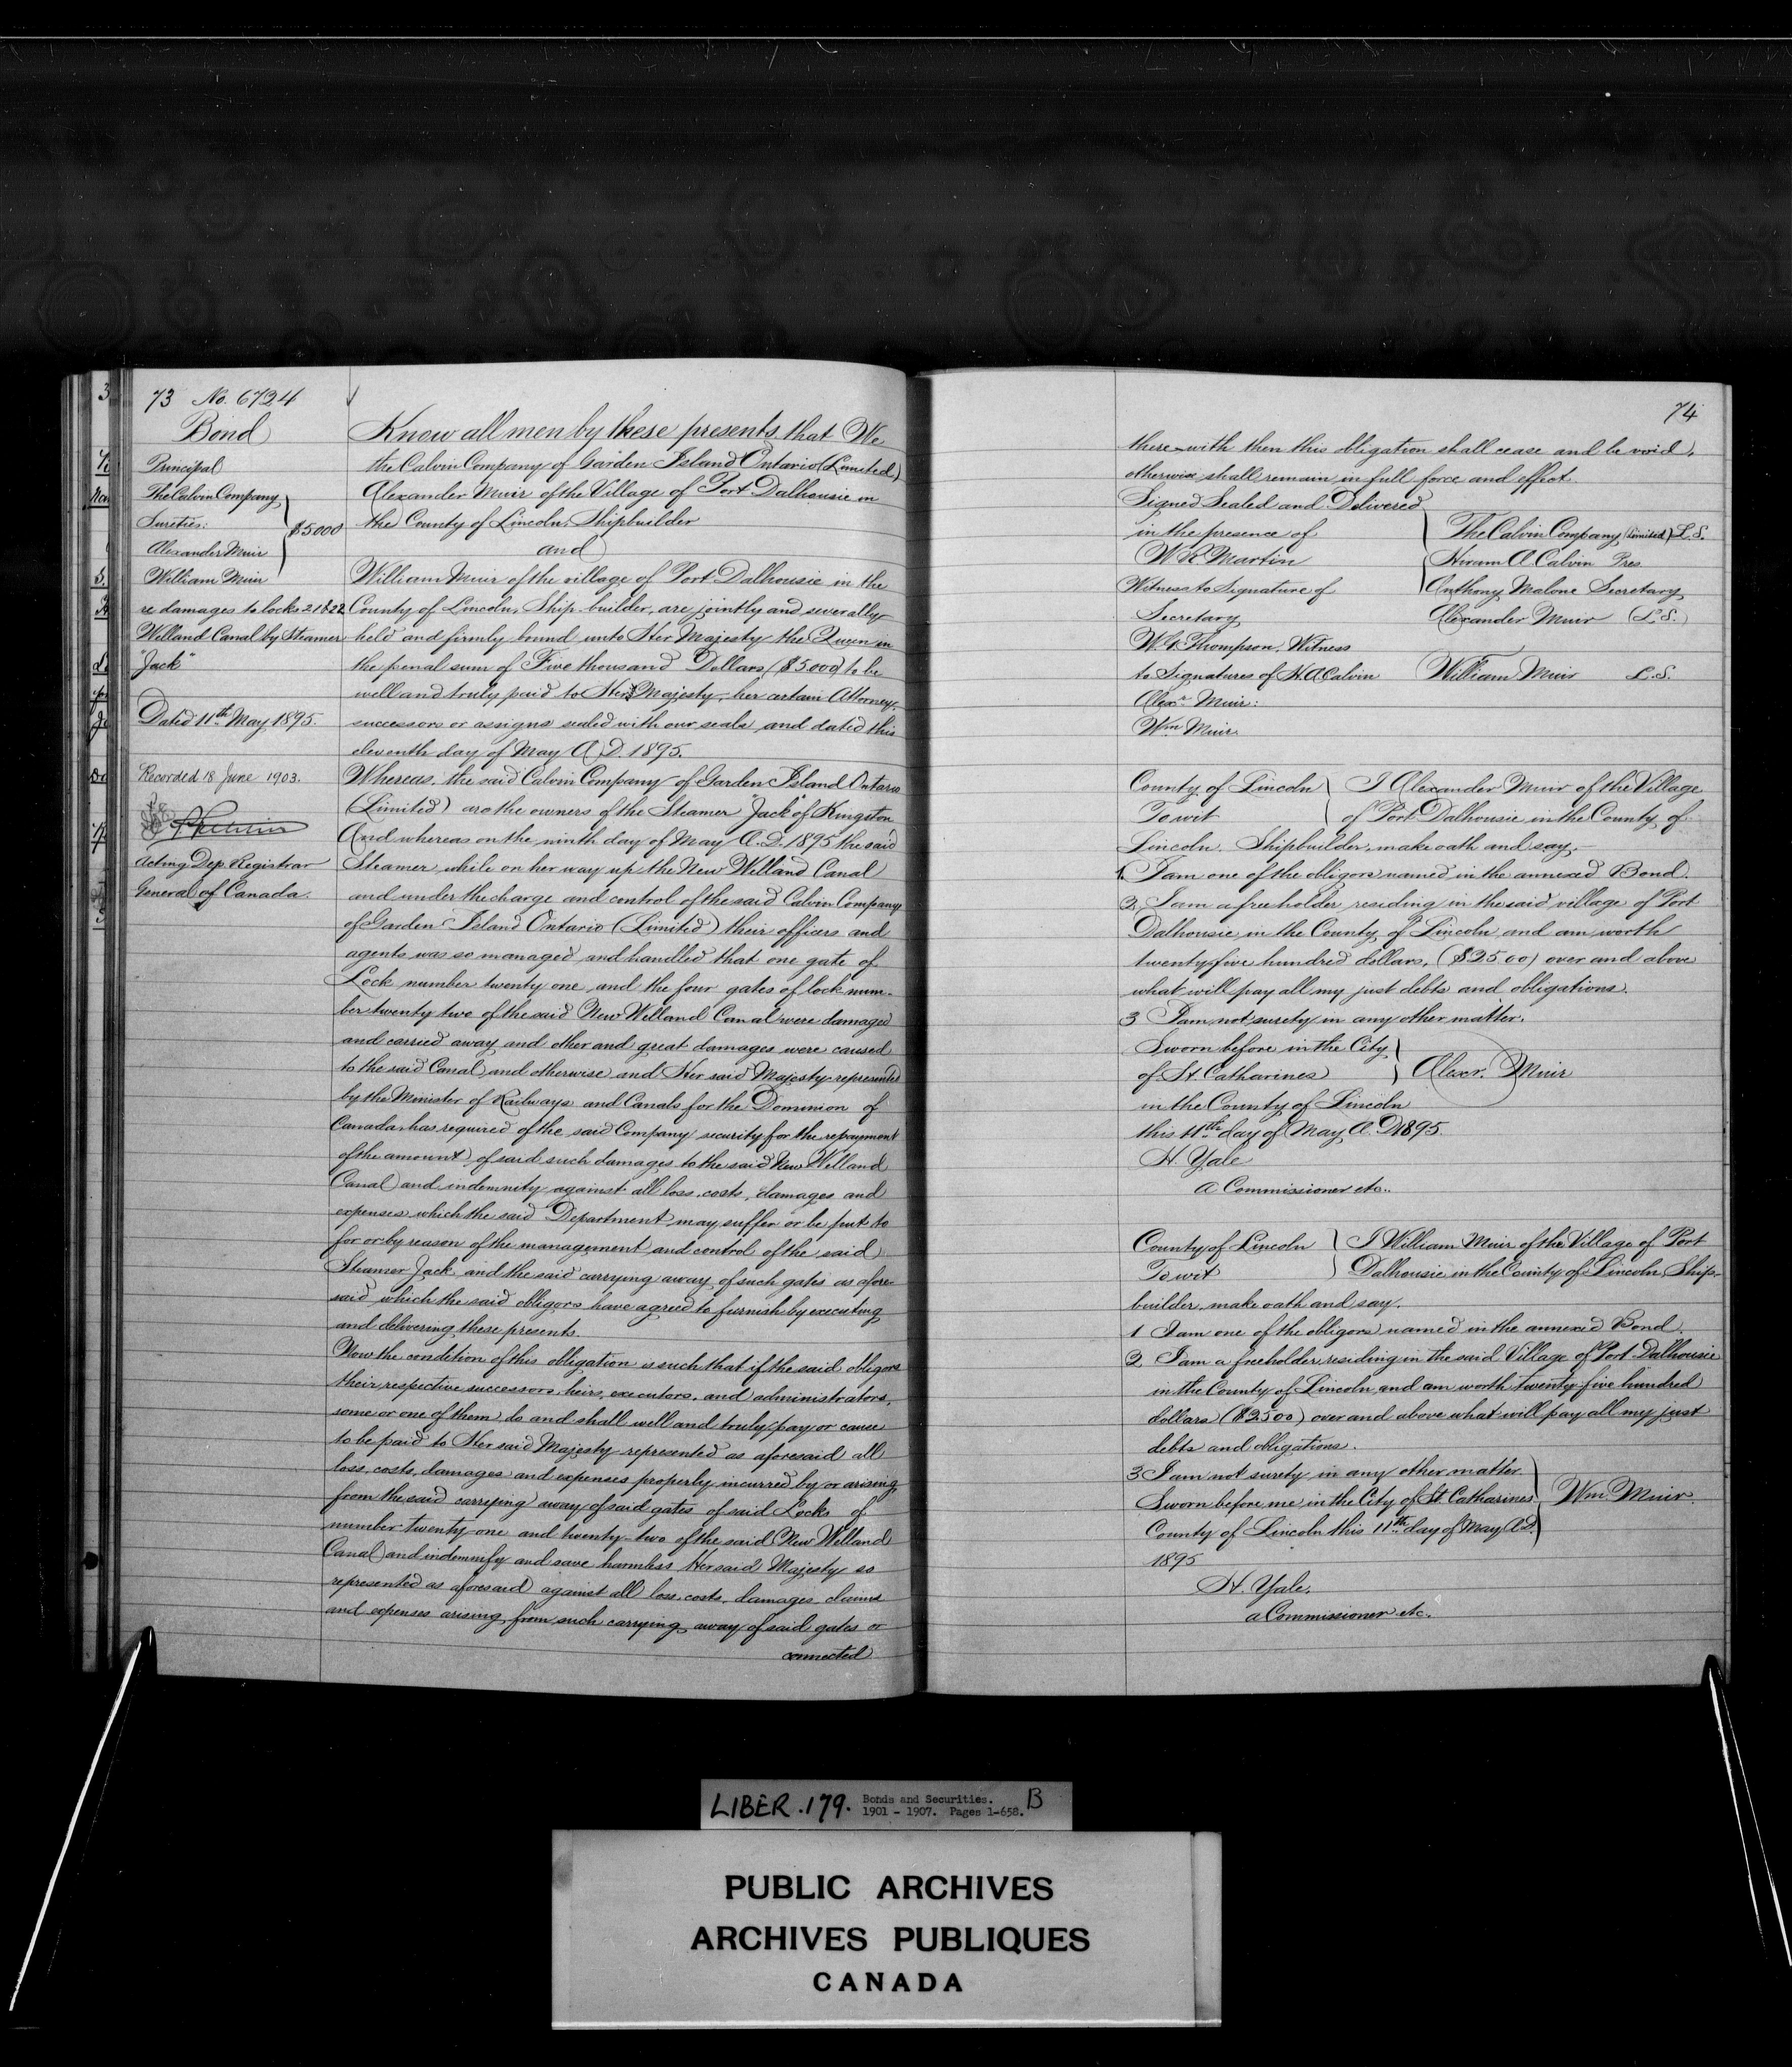 73 No. 6724
Bond
Principal
The Calvin Company
Sureties:
$5000
Alexander Muir
William Muir
re damages to locks 21 & 22
Welland Canal by Steamer
"Jack"
Dated 11th May 1895.
Recorded 18 June 1903.
Acting Dep. Registrar
General of Canada.
Know all men by these presents that We
the Calvin Company of Garden Island Ontario (Limited)
Alexander Muir of the Village of Port Dalhousie in
the County of Lincoln, Shipbuilder
and
William Muir of the village of Port Dalhousie in the
County of Lincoln, Ship-builder, are jointly and severally
held and firmly bound unto Her Majesty the Queen in
the penal sum of Five thousand Dollars ($5000) to be
well and truly paid to Her Majesty, her certain Attorney,
successors or assigns sealed with our seals and dated this
eleventh day of May A.D. 1895.
Whereas, the said Calvin Company of Garden Island Ontario
(Limited) are the owners of the Steamer "Jack" of Kingston
And whereas on the ninth day of May A.D. 1895 the said
Steamer while on her way up the New Welland Canal
and under the charge and control of the said Calvin Company
of Garden Island Ontario (Limited) their officers and
agents was so managed and handled that one gate of
Lock number twenty one and the four gates of lock num-
ber twenty two of the said New Welland Canal were damaged
and carried away and other and great damages were caused
to the said Canal and otherwise and Her said Majesty represented
by the Minister of Railways and Canals for the Dominion of
Canada has required of the said Company security for the repayment
of the amount of said such damages to the said New Welland
Canal and indemnity against all loss, costs, damages and
expenses which the said Department may suffer or be put to
for or by reason of the management and control of the said
Steamer Jack and the said carrying away of such gates as afore-
said which the said obligors have agreed to furnish by executing
and delivering these presents.
Now the condition of this obligation is such that if the said obligors
their respective successors, heirs, executors, and administrators,
some or one of them do and shall well and truly pay or cause
to be paid to Her said Majesty represented as aforesaid all
loss, costs, damages and expenses properly incurred by or arising
from the said carrying away of said gates of said Locks of
number twenty-one and twenty-two of the said New Welland
Canal and indemnify and save harmless Her said Majesty so
represented as aforesaid against all loss, costs, damages claims
and expenses arising from such carrying away of said gates or
connected
74
there-with then this obligation shall cease and be void,
otherwise shall remain in full force and effect.
Signed Sealed and Delivered
in the presence of
The Calvin Company (Limited) L.S.
W R Martin
Hiram A Calvin Pres.
Witness to Signature of
Anthony Malone Secretary
Secretary
Alexander Muir (L.S.)
W. G. Thompson, Witness
to Signatures of H. A Calvin
William Muir L.S.
Alexr Muir:
Wm Muir.
County of Lincoln I Alexander Muir of the Village
To wit of Port Dalhousie in the County of
Lincoln. Shipbuilder, make oath and say.-
1. I am one of the obligors named in the annexed Bond.
2. I am a freeholder residing in the said village of Port
Dalhousie in the County of Lincoln and am worth
twenty-five hundred dollars, ($2500) over and above
what will pay all my just debts and obligations.
3 I am not surety in any other matter.
Sworn before in the City
of St. Catharines Alexr. Muir
in the County of Lincoln
this 11th day of May A. D 1895.
H. Yale
A Commissioner etc..
County of Lincoln I William Muir of the Village of Port
To wit Dalhousie in the County of Lincoln, Ship-
builder, make oath and say.
1 I am one of the obligors named in the annexed Bond.
2 I am a freeholder, residing in the said Village of Port-Dalhousie
in the County of Lincoln and am worth twenty-five hundred
dollars ($2500) over and above what will pay all my just
debts and obligations.
3 I am not surety in any other matter.
Sworn before me in the City of St. Catharines Wm Muir.
County of Lincoln this 11th day of May A.D.
1895
H. Yale.
a Commissioner etc.
LIBER .179. Bonds and Securities. B
1901 - 1907. Pages 1-658.
PUBLIC ARCHIVES
ARCHIVES PUBLIQUES
CANADA